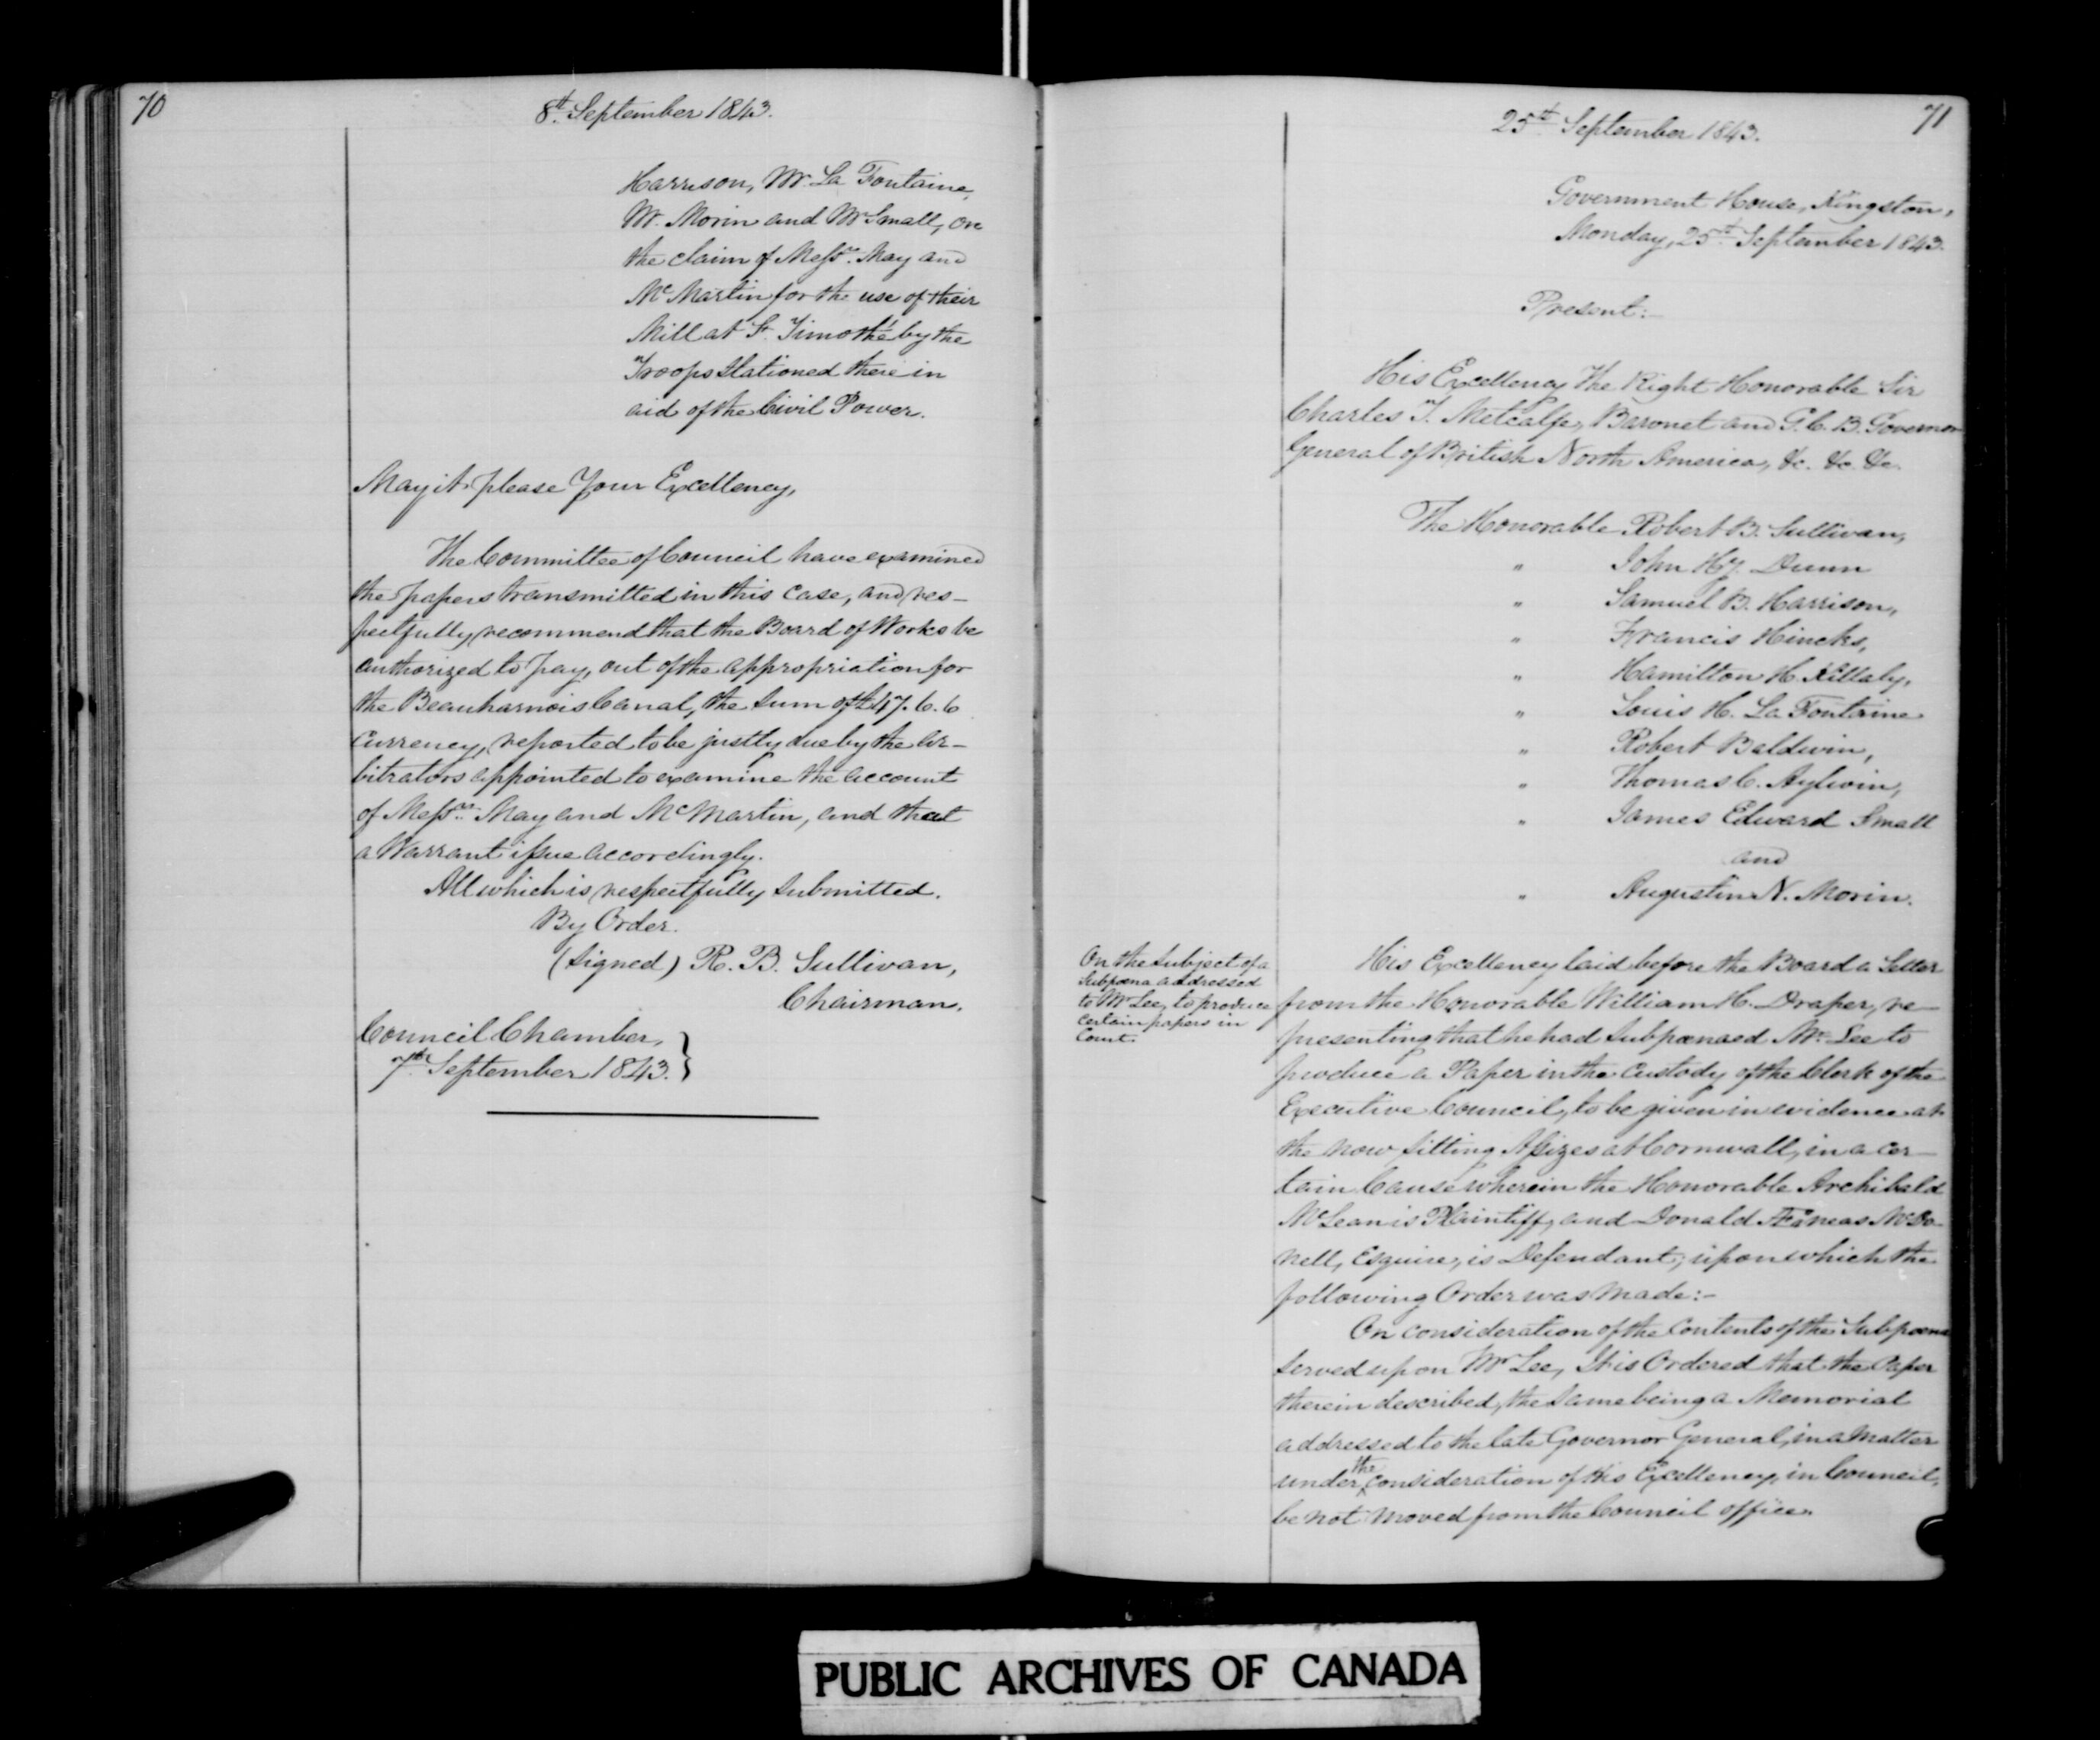 70
8th September 1843.
Harrison, Mr. La Fontaine,
Mr. Morin and Mr Small, on
the claim of Messrs. May and
McMartin for the use of their
Mill at St. Timothé by the
Troops stationed there in
aid of the Civil Power.
May it please Your Excellency,
The Committee of Council have examined
the papers transmitted in this case, and res-
pectfully recommend that the Board of Works be
authorized to pay, out of the appropriation for
the Beauharnois Canal, the sum of £47.6.6
Currency, reported to be justly due by the Ar-
bitrators appointed to examine the account
of Messrs. May and McMartin, and that
a Warrant issue accordingly.
All which is respectfully submitted.
By Order.
(signed) R. B. Sullivan,
Chairman.
Council Chamber,
7th September 1843.
71
25th September 1843.
Government House, Kingston,
Monday, 25th September 1843.
Present:
His Excellency The Right Honorable Sir
Charles T. Metcalfe, Baronet and G.C.B. Governor
General of British North America, &c. &c. &c.
The Honorable Robert B. Sullivan,
" John Hy. Dunn
" Samuel B. Harrison,
" Francis Hincks,
" Hamilton H. Killaly,
" Louis H. La Fontaine
" Robert Baldwin,
" Thomas C. Aylwin,
" James Edward Small
and
" Augustin N. Morin.
On the subject of a
Subpœna addressed
to Mr Lee, to produce
certain papers in
Court.
His Excellency laid before the Board a Letter
from the Honorable William H. Draper, re-
presenting that he had Subpœnaed Mr. Lee to
produce a Paper in the custody of the Clerk of the
Executive Council, to be given in evidence at
the now sitting Assizes at Cornwall, in a cer-
tain Cause wherein the Honorable Archibald
McLean is Plaintiff, and Donald Æneas McDo-
nell, Esquire, is Defendant; upon which the
following Order was made:-
On consideration of the contents of the Subpœna
served upon Mr Lee, It is Ordered that the Paper
therein described, the same being a Memorial
addressed to the late Governor General, in a matter
under the consideration of His Excellency, in Council,
be not moved from the Council office.
PUBLIC ARCHIVES OF CANADA